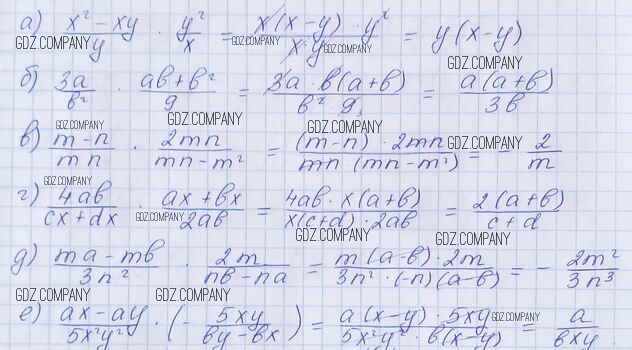 а) (x² - xy)/y · y²/x = (x(x-y) · y²)/(x · y) = y(x-y)
GDZ.COMPANY GDZ.COMPANY GDZ.COMPANY
GDZ.COMPANY
б) 3a/b² · (ab+b²)/9 = (3a · b(a+b))/(b² · 9) = (a(a+b))/(3b)
GDZ.COMPANY GDZ.COMPANY GDZ.COMPANY
в) (m-n)/(mn) · 2mn/(mn-m²) = ((m-n) · 2mn)/(mn(mn-m²)) = - 2/m
GDZ.COMPANY
GDZ.COMPANY
г) 4ab/(cx+dx) · (ax+bx)/(2ab) = (4ab · x(a+b))/(x(c+d) · 2ab) = (2(a+b))/(c+d)
GDZ.COMPANY
GDZ.COMPANY GDZ.COMPANY
д) (ma-mb)/(3n²) · 2m/(nb-na) = (m(a-b) · 2m)/(3n² · (-n)(a-b)) = - 2m²/(3n³)
GDZ.COMPANY GDZ.COMPANY
е) (ax-ay)/(5x²y²) · (- 5xy/(by-bx)) = (a(x-y) · 5xy)/(5x²y² · b(x-y)) = a/(bxy)
GDZ.COMPANY